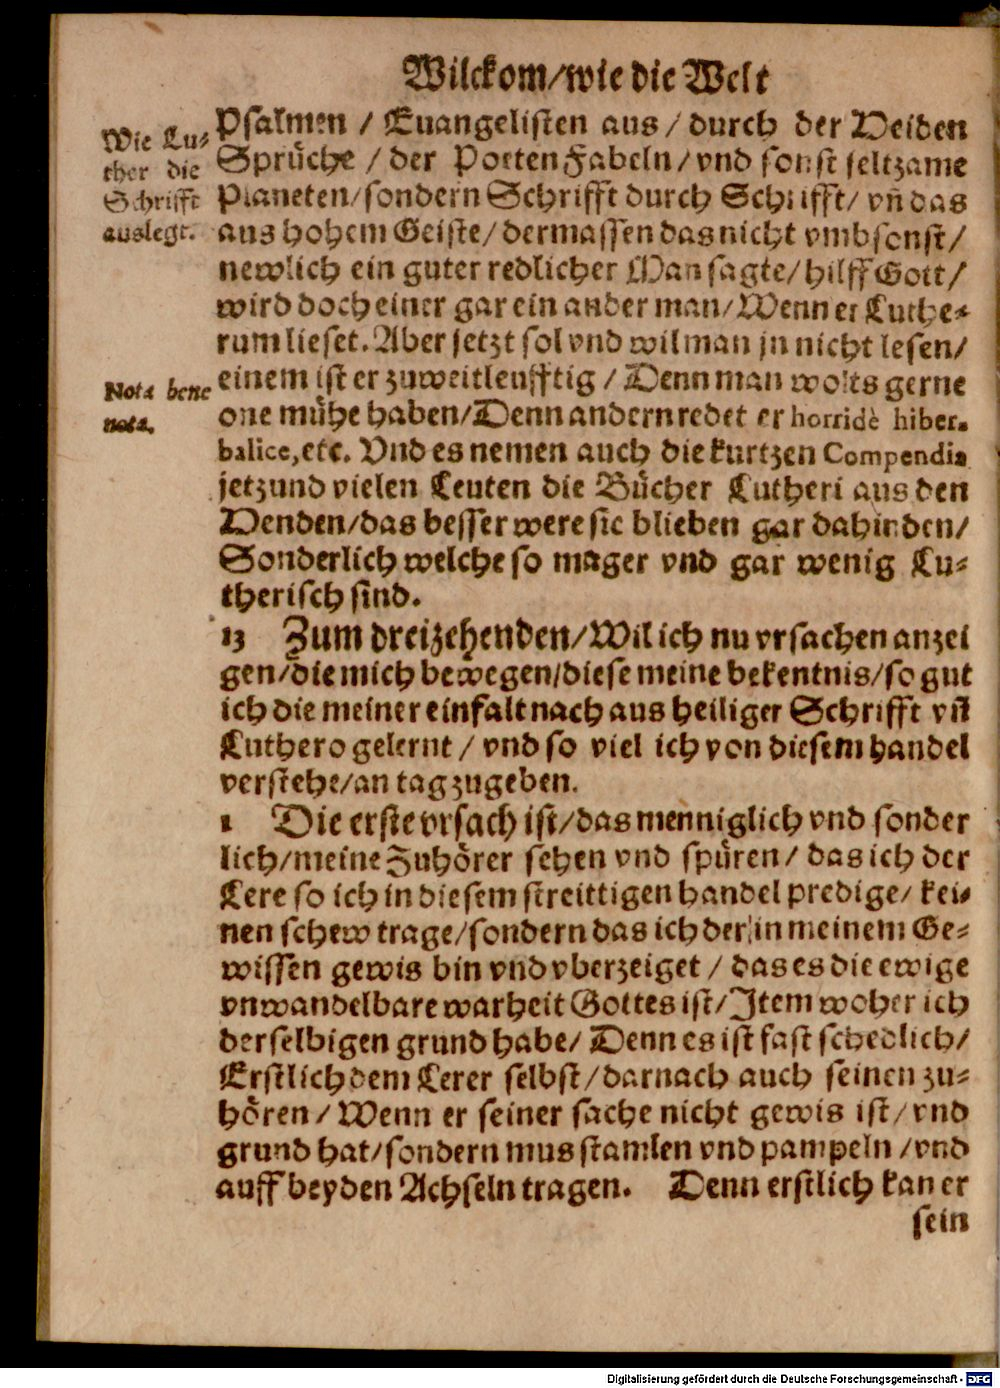 Wilckom/wie die Welt
Wie Lu-
ther die
Schrifft
auslegt.
Psalmen / Euangelisten aus / durch der Heiden
Sprüche / der Poeten Fabeln / vnd sonst seltzame
Planeten/sondern Schrifft durch Schrifft/ vñ das
aus hohem Geiste/ dermassen das nicht vmbsonst/
newlich ein guter redlicher Man sagte/hilff Gott/
wird doch einer gar ein ander man/Wenn er Luthe-
rum lieset. Aber jetzt sol vnd wil man jn nicht lesen/
Nota bene
nota.
einem ist er zuweitleufftig / Denn man wolts gerne
one mühe haben/Denn andern redet er horridè hiber-
balice, etc. Vnd es nemen auch die kurtzen Compendia
jetzund vielen Leuten die Bücher Lutheri aus den
Henden/das besser were sie blieben gar dahinden/
Sonderlich welche so mager vnd gar wenig Lu-
therisch sind.
13 Zum dreizehenden/Wil ich nu vrsachen anzei
gen/die mich bewegen/diese meine bekentnis/so gut
ich die meiner einfalt nach aus heiliger Schrifft vñ
Luthero gelernt / vnd so viel ich von diesem handel
verstehe/an tag zugeben.
1 Die erste vrsach ist/das menniglich vnd sonder
lich/meine Zuhörer sehen vnd spüren/ das ich der
Lere so ich in diesem streittigen handel predige/ kei-
nen schew trage/sondern das ich der in meinem Ge-
wissen gewis bin vnd vberzeiget / das es die ewige
vnwandelbare warheit Gottes ist/Item woher ich
derselbigen grund habe/ Denn es ist fast schedlich/
Erstlich dem Lerer selbst/darnach auch seinen zu-
hören / Wenn er seiner sache nicht gewis ist/vnd
grund hat/sondern mus stamlen vnd pampeln /vnd
auff beyden Achseln tragen. Denn erstlich kan er
sein
Digitalisierung gefördert durch die Deutsche Forschungsgemeinschaft - DFG